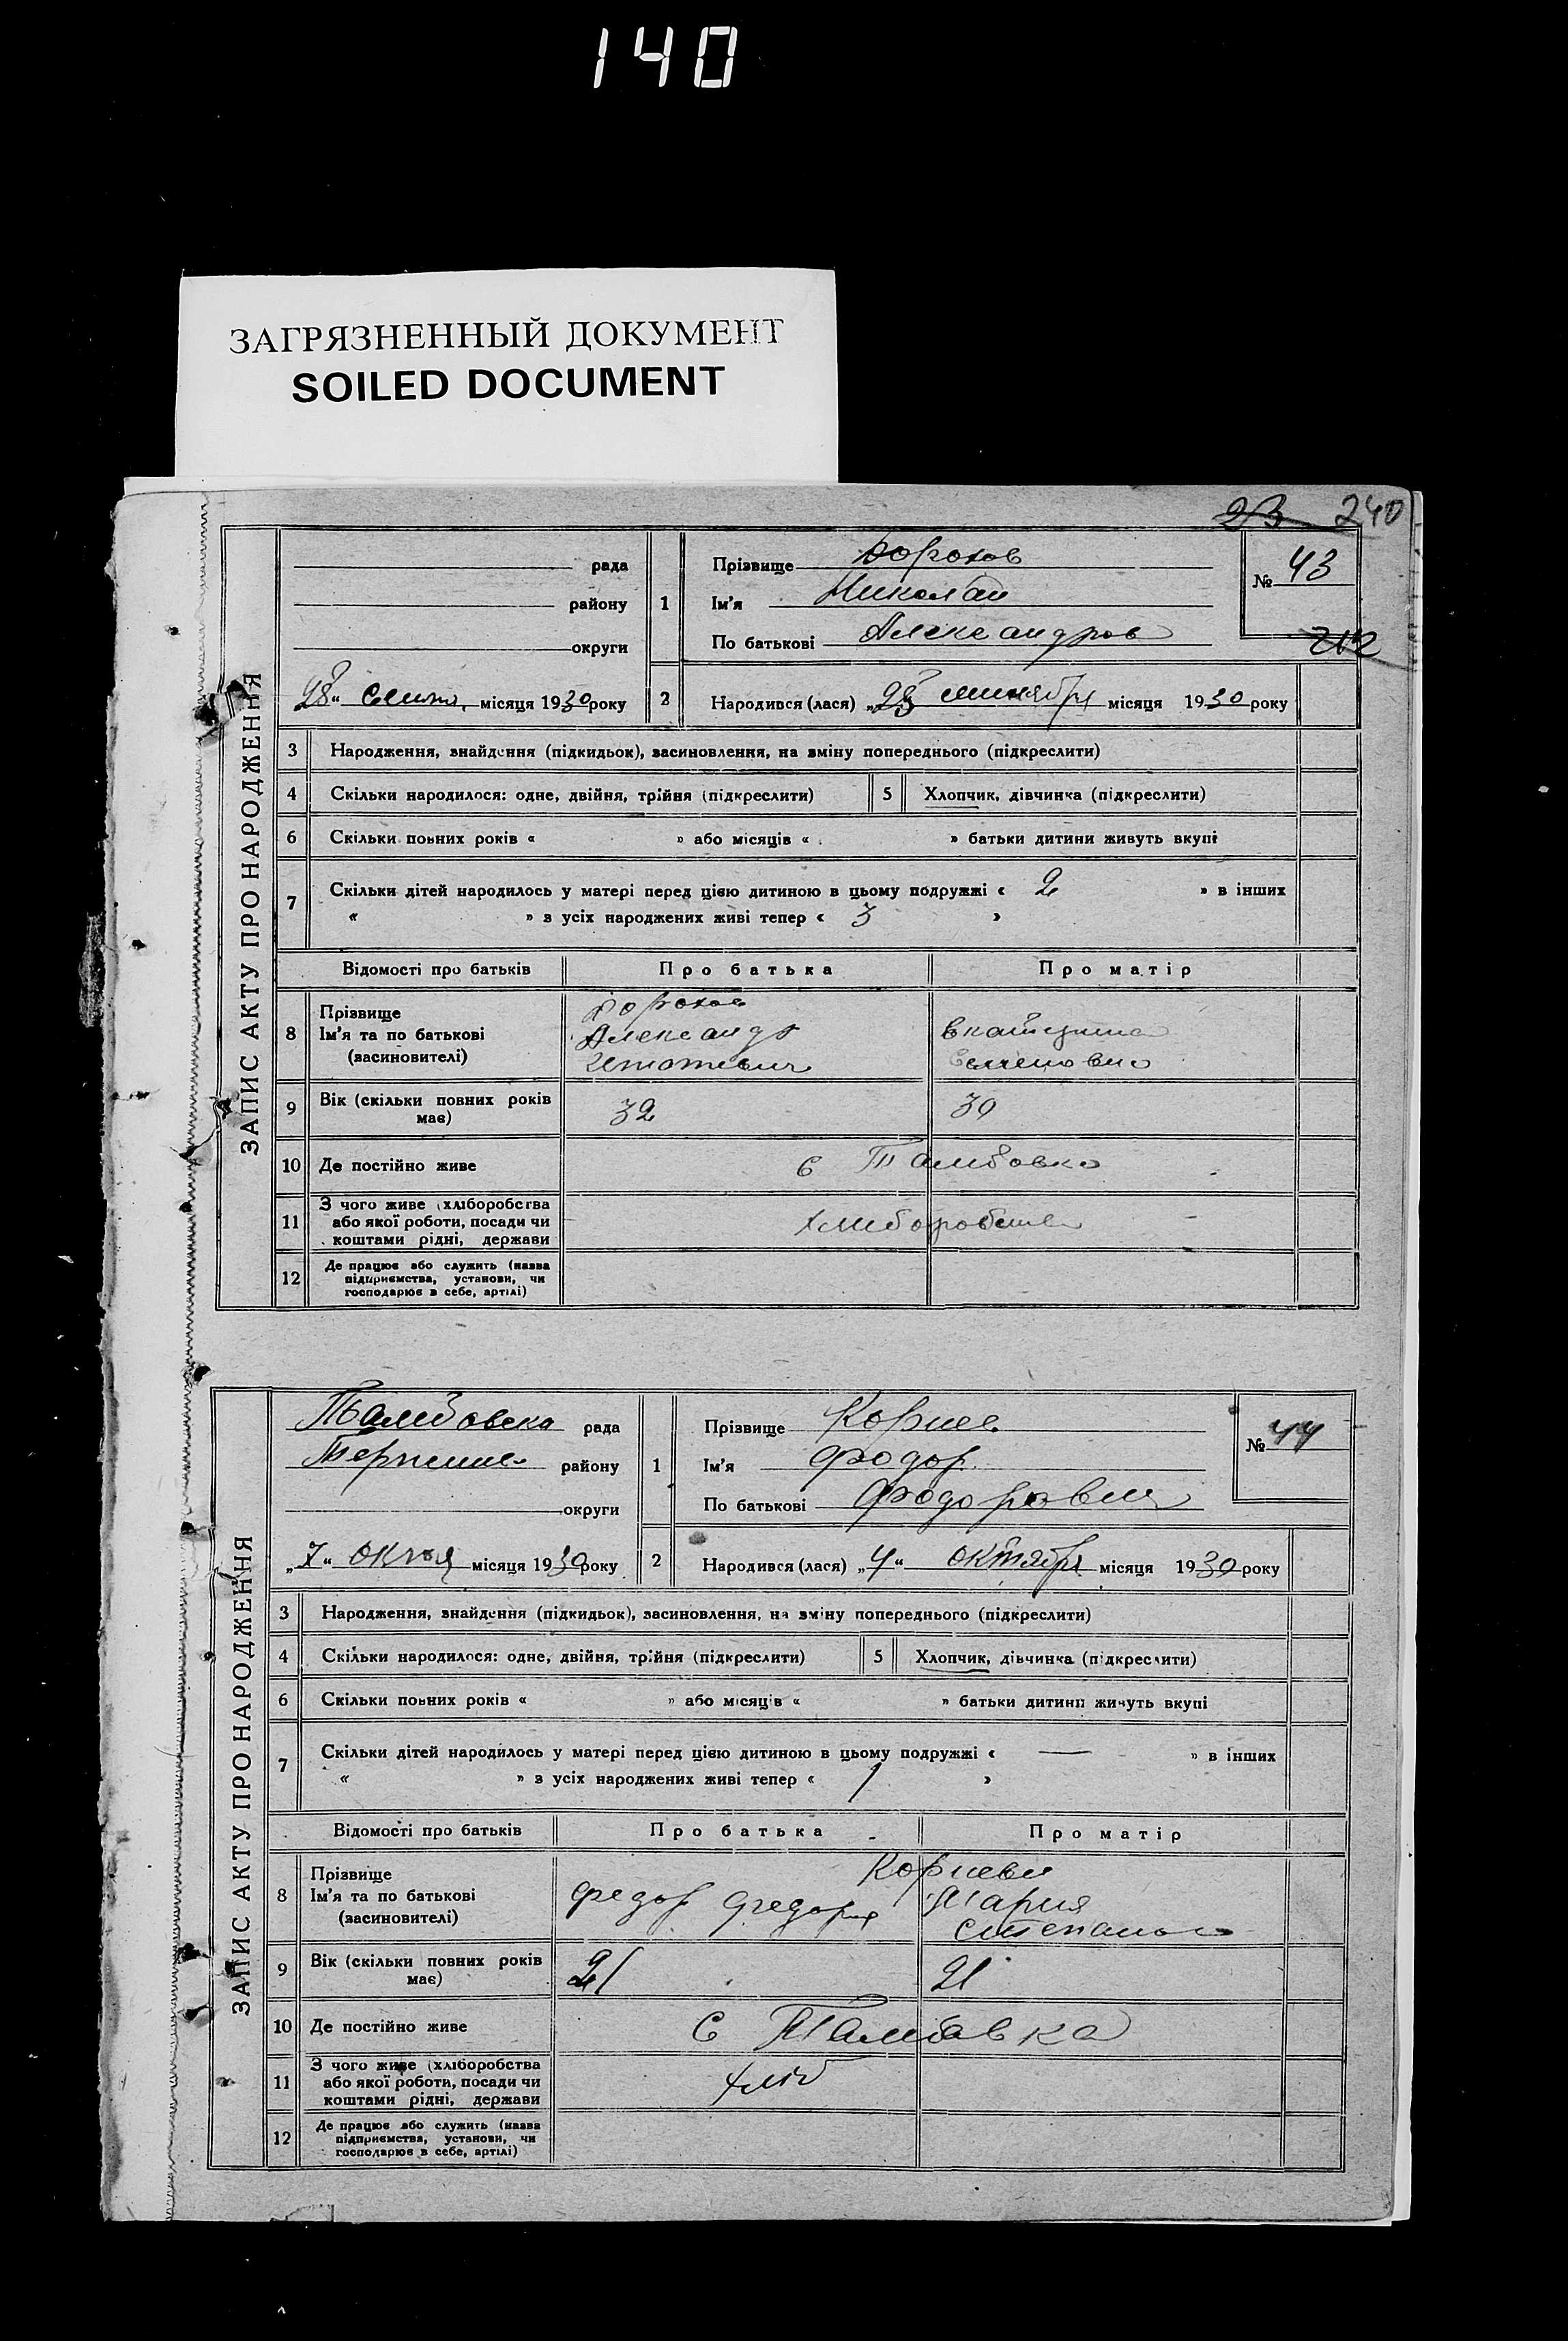 140
ЗАГРЯЗНЕННЫЙ ДОКУМЕНТ
SOILED DOCUMENT
23 240
ЗАПИС АКТУ ПРО НАРОДЖЕННЯ
рада
району
округи
28 місяця 1930 року
1
Прізвище Дорохов
Ім'я Николай
По батькові Александров
№ 43
212
2
Народився (лася) місяця 1930 року
3 Народження, знайдення (підкидьок), засиновлення, на зміну попереднього (підкреслити)
4 Скільки народилося: одне, двійня, трійня (підкреслити) 5 Хлопчик, дівчинка (підкреслити)
6 Скільки повних років « » або місяців « » батьки дитини живуть вкупі
7 Скільки дітей народилось у матері перед цією дитиною в цьому подружжі « 2 » в інших
« » з усіх народжених живі тепер « 3 »
Відомості про батьків Про батька Про матір
8 Прізвище
Ім'я та по батькові
(засновителі)
Дорохов
Александр
Екатерина
Семеновно
9 Вік (скільки повних років має) 32 30
10 Де постійно живе с Тамбовка
11 З чого живе (хліборобства
або якої роботи, посади чи
коштами рідні, держави
12 Де працює або служить (назва
підприємства, установи, чи
господарює в себе, артілі)
ЗАПИС АКТУ ПРО НАРОДЖЕННЯ
Тамбовска рада
району
округи
„7“ місяця 1930 року
1
Прізвище Корнев
Ім'я Фодор
По батькові
№ 44
2
Народився (лася) „4“ октября місяця 1930 року
3 Народження, знайдення (підкидьок), засиновлення, на зміну попереднього (підкреслити)
4 Скільки народилося: одне, двійня, трійня (підкреслити) 5 Хлопчик, дівчинка (підкреслити)
6 Скільки повних років « » або місяців « » батьки дитини живуть вкупі
7 Скільки дітей народилось у матері перед цією дитиною в цьому подружжі « — » в інших
« » з усіх народжених живі тепер « 1 »
Відомості про батьків Про батька Про матір
8 Прізвище
Ім'я та по батькові
(засиновителі)
Корневи
Федор Мария
9 Вік (скільки повних років має) 21 21
10 Де постійно живе с Тамбовка
11 З чого живе (хліборобства
або якої роботи, посади чи
коштами рідні, держави
хліб
12 Де працює або служить (назва
підприємства, установи, чи
господарює в себе, артілі)